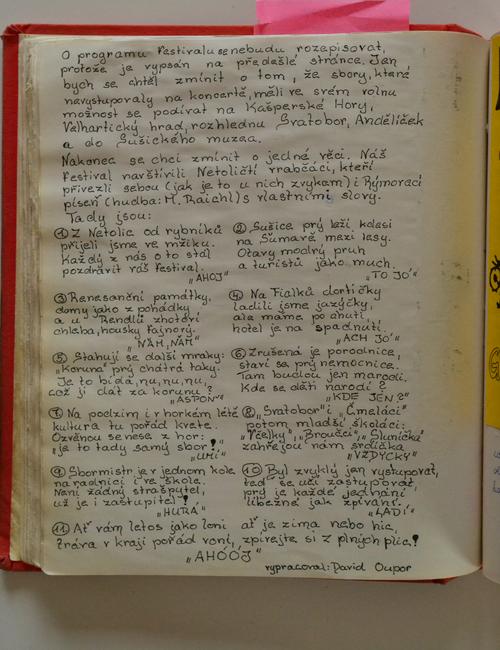 O programu festivalu se nebudu rozepisovat,
protože je vypsán na předešlé stránce. Jen
bych se chtěl zmínit o tom, že sbory, které
navystupovaly na koncertě, měli ve svém volnu
možnost se podívat na Kašperské Hory,
Velhartický hrad, rozhlednu Svatobor, Andělíček
a do Sušického muzea.
Nakonec se chci zmínit o jedné věci. Náš
festival navštívili Netoličtí vrabčáci, kteří
přivezli sebou (jak je to u nich zvykem) i Rýmovací
píseň (hudba: M. Raichl) s vlastními slovy.
Tady jsou:
① Z Netolic od rybníků
přijeli jsme ve mžiku.
Každý z nás o to stál
pozdravit váš festival.
"AHOJ"
② Sušice prý leží kdesi
na Šumavě mezi lesy.
Otavy modrý pruh
a turistů jako much.
"TO JO"
③ Renesanční památky,
domy jako z pohádky
a u Rendlů zhotoví
chleba, housky fajnový.
"ŇAM, ŇAM"
④ Na Fialků dortíčky
ladili jsme jazýčky,
ale máme po chuti,
hotel je na spadnutí.
"ACH JO"
⑤ Stahují se další mraky:
"Koruna" prý chátrá taky.
Je to bída, nu, nu, nu,
což jí dát za korunu?
"ASPOŇ"
⑥ Zrušená je porodnice,
staví se prý nemocnice.
Tam budou jen marodi.
Kde se děti narodí?
"KDE JEN?"
⑦ Na podzim i v horkém létě
kultura tu pořád kvete.
Ozvěnou se nese z hor:
"je to tady samý sbor!"
"UMÍ"
⑧ "Svatobor" i "Čmeláci"
potom mladší školáci:
"Včelky", "Broučci", "Sluníčka"
zahřejou nám srdíčka
"VŽDYCKY"
⑨ Sbormistr je v jednom kole
na radnici i ve škole.
Není žádný strašpytel,
už je i zastupitel!
"HURÁ"
⑩ Byl zvyklý jen vystupovat,
teď se učí zastupovat,
prý je každé jednání
líbezné jak zpívání.
"LADÍ"
⑪ Ať vám letos jako loni ať je zima nebo hic,
tráva v kraji pořád voní, zpívejte si z plných plic!
"AHÓÓJ"
vypracoval: David Oupor